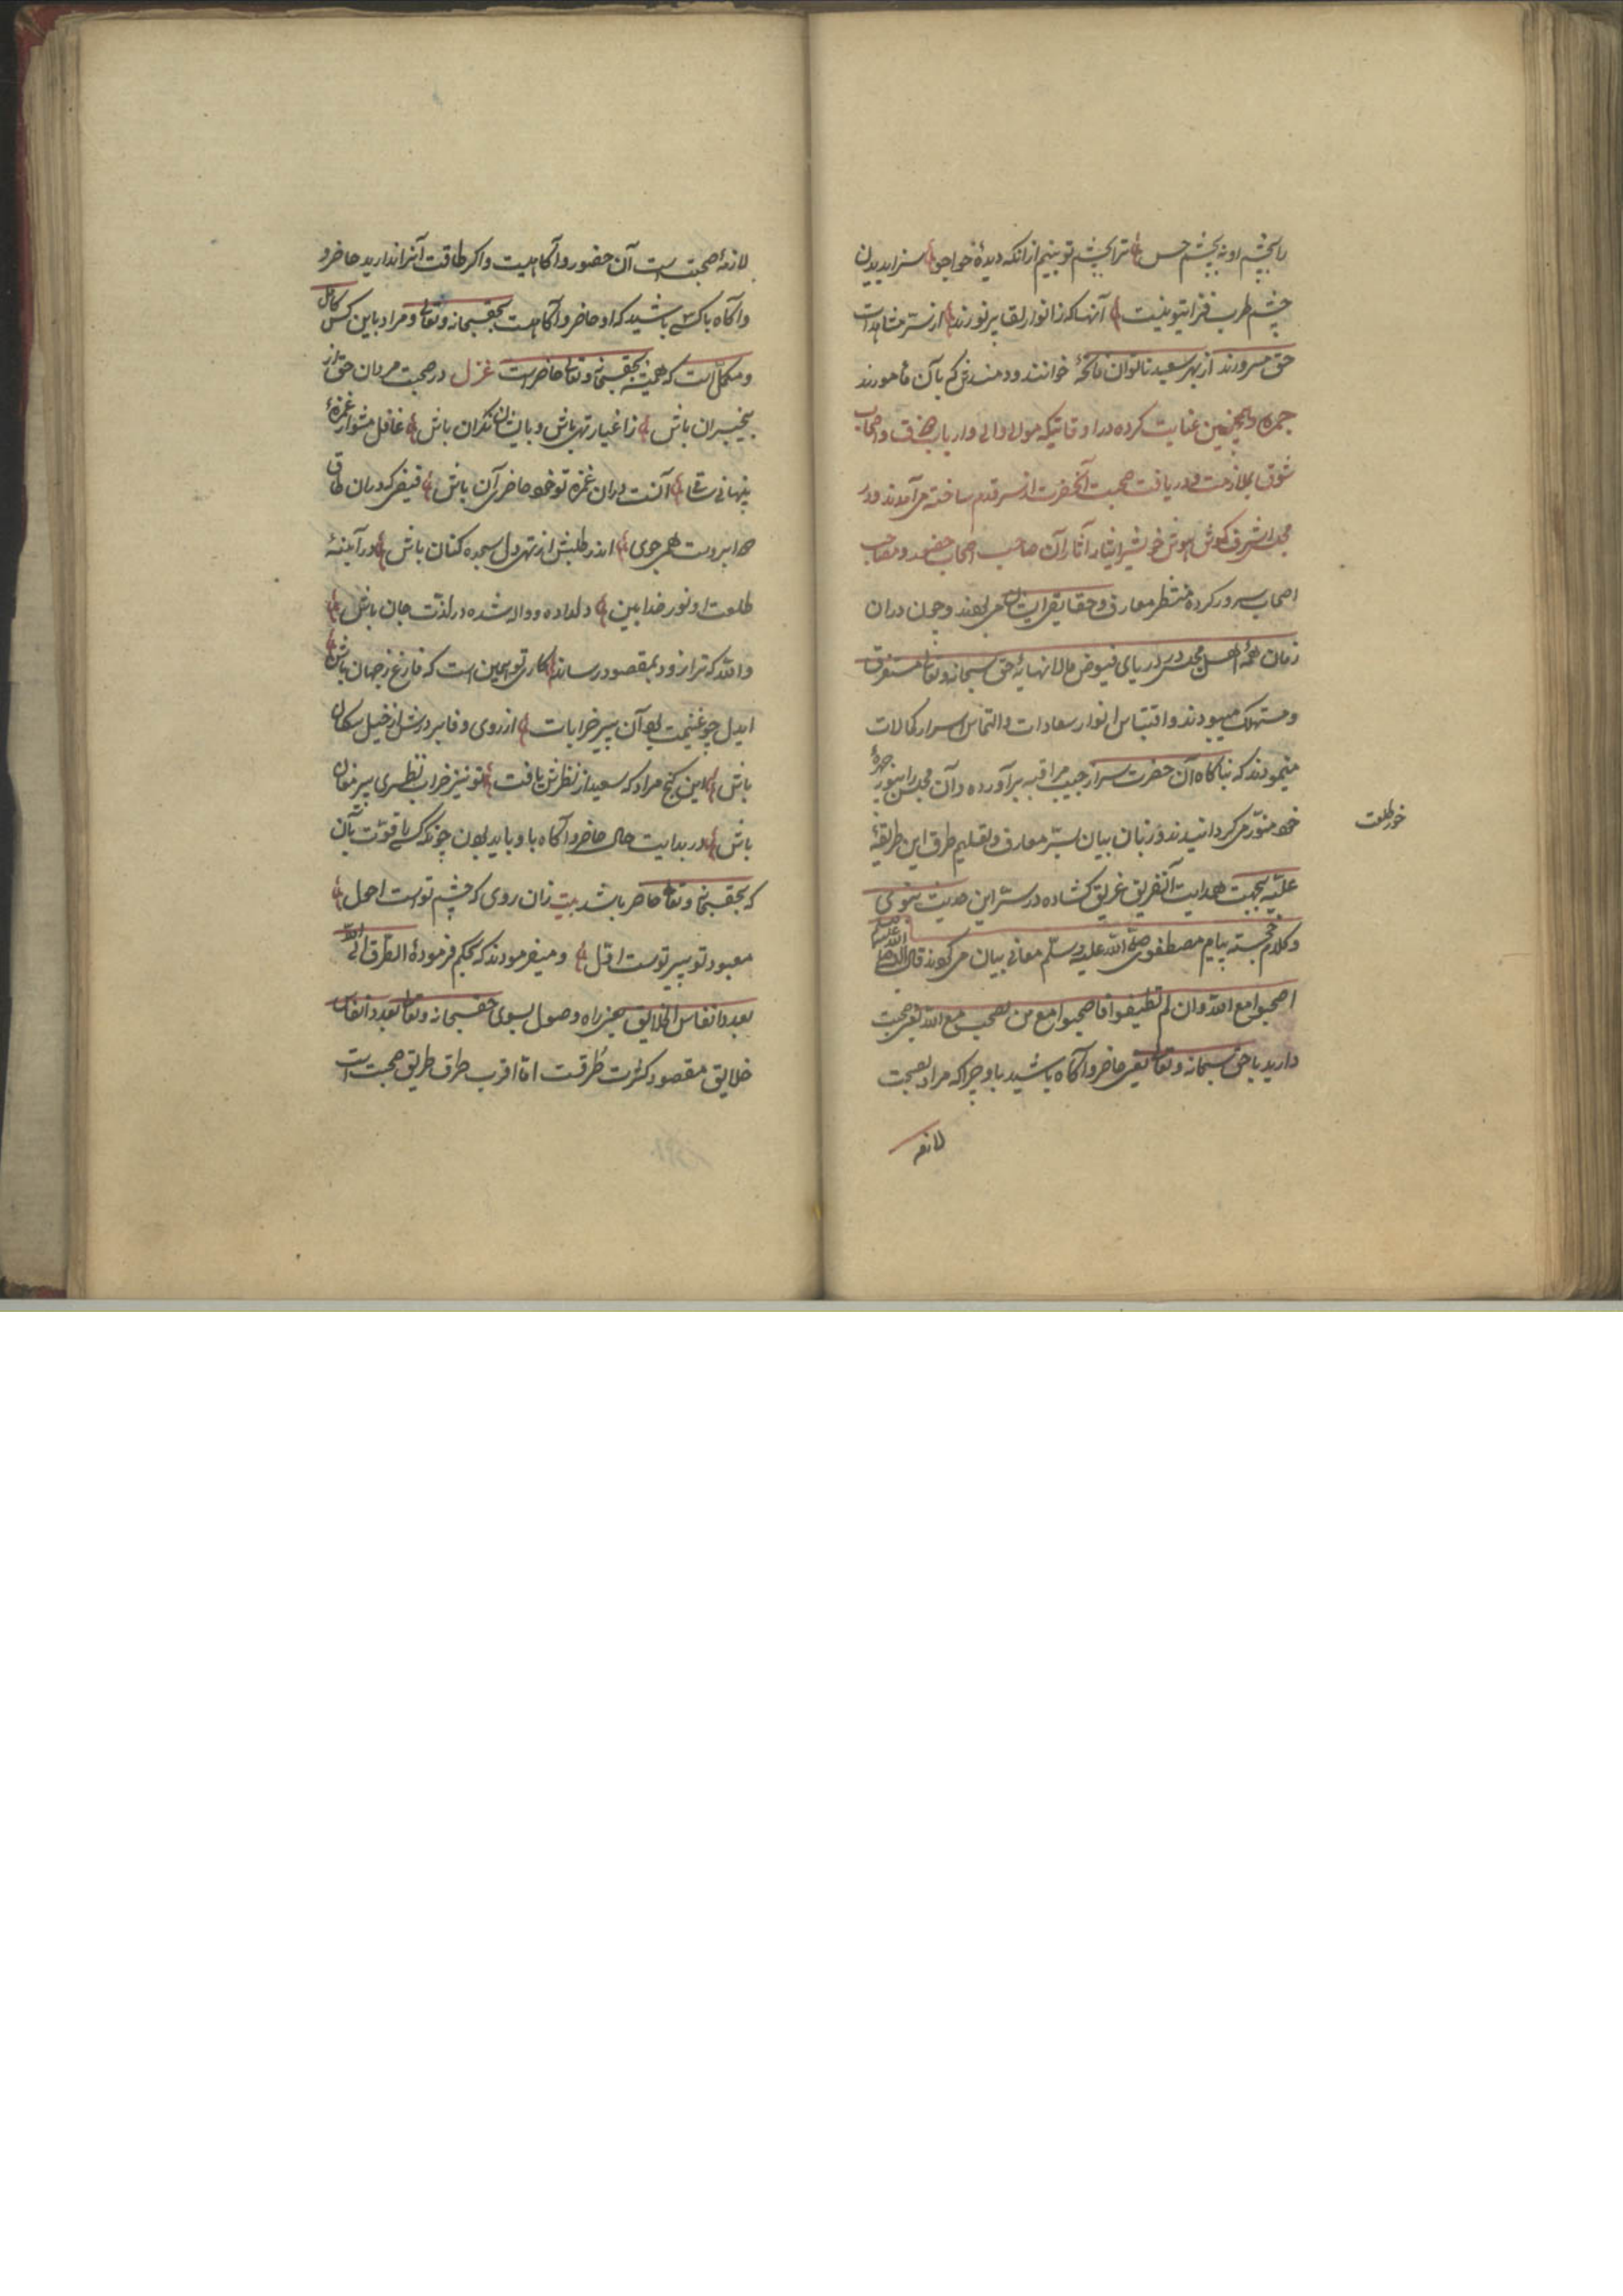 را بچشم او نه بچشم حس ترا بچشم تو بینم از انکه دیدهٔ خواجو سزا بدیدن
چشم طرب فزای تو نیست آنها که ز انوار لقا پر نورند از سرّ مشاهدات
حق مسرورند از بهر سعید ناتوان فاتحهٔ خوانند و دمند کم بآن مأمورند
و همچنین عنایت کرده در اوقاتیکه موالی و ارباب و اصحاب
شوق بملازمت و دریافت صحبت آنحضرت از سر قدم ساخته می آمدند و در
مجلس اشرف گوش هوش خویش را نثار آن صاحب اصحاب حضور و مصاحب
اصحاب سرور کرده منتظر معارف و حقایق ایشان می بودند و چون دران
زمان همهٔ اهل مجلس در دریای فیوض مالانهایهٔ حق سبحانه و تعالی مستغرق
و مستهلک میبودند و اقتباس انوار سعادات و التماس اسرار کمالات
مینمودند که بناکاه آن حضرت سر از جیب مراقبه برآورده و آن مجلس را بنور چهرهٔ
خود منوّر می کردانیدند و زبان بیان بسرّ معارف و تعلیم طرق این طریقهٔ
خور طلعت
علیّه بجهت هدایت آنفریق غریق کشاده در سرّ این حدیث نبوی
و کلام خجسته پیام مصطفوی صلّی اللّه علیه و سلّم معانی بیان می کردند قال
اصحبوا مع اللّه وان لم تطیقوا فاصحبوا مع من یصحب مع اللّه یعنی صحبت
دارید با حق سبحانه و تعالی یعنی حاضر و آکاه باشید باو چرا که مراد بصحبت
لازمه
لازمهٔ صحبتست آن حضور و آکاهیست و اکر طاقت آنرا ندارید حاضر و
و آکاه با کسی باشید که او حاضر و آکاهست بحقسبحانه و تعالی و مراد باین کس کامل
و مکمّل است که همیشه بحقسبحانه و تعالی حاضر است غزل در صحبت مردان حق از
بیخبران باش ز اغیار تهی باش و بایشان نکران باش غافل مشو از غمزهٔ
پنهانی ساقی آنست دران غمزه تو خود حاضر آن باش فیضی که دران طاق
دو ابروست همی جوی اندر طلبش از ته دل سجده کنان باش در آیینهٔ
طلعت او نور خدا بین دلداده و واله شده در لذّت جان باش
واللّه که ترا زود بمقصود رساند کار تو همین است که فارغ ز جهان باش
ایدل چو غنیمت بود آن پیر خرابات از روی وفا بر درش از خیل سکان
باش این کنج مراد که سعید از نظرش یافت تو نیز خراب نظری پیر مغان
باش در بدایت حال حاضر و آکاه باو باید بودن چونکه کسی با قوّت بآن
که بحقسبحانه و تعالی حاضر باشد بیت زان روی که چشم توست احول
معبود تو پیر توست اوّل و میفرمودند که بحکم فرمودهٔ الطّرق الی اللّه
بعدد انفاس الخلایق هر چیز راه وصول بسوی حقسبحانه و تعالی بعدد انفاس
خلایق مقصود کثرت طُرقست امّا اقرب طرق طریق صحبت است